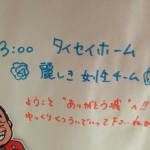 3:00 タイセイホーム
麗しき女性チーム
ようこそ "ありがとう城"へ!!
ゆっくりくつろいでいって下さいね